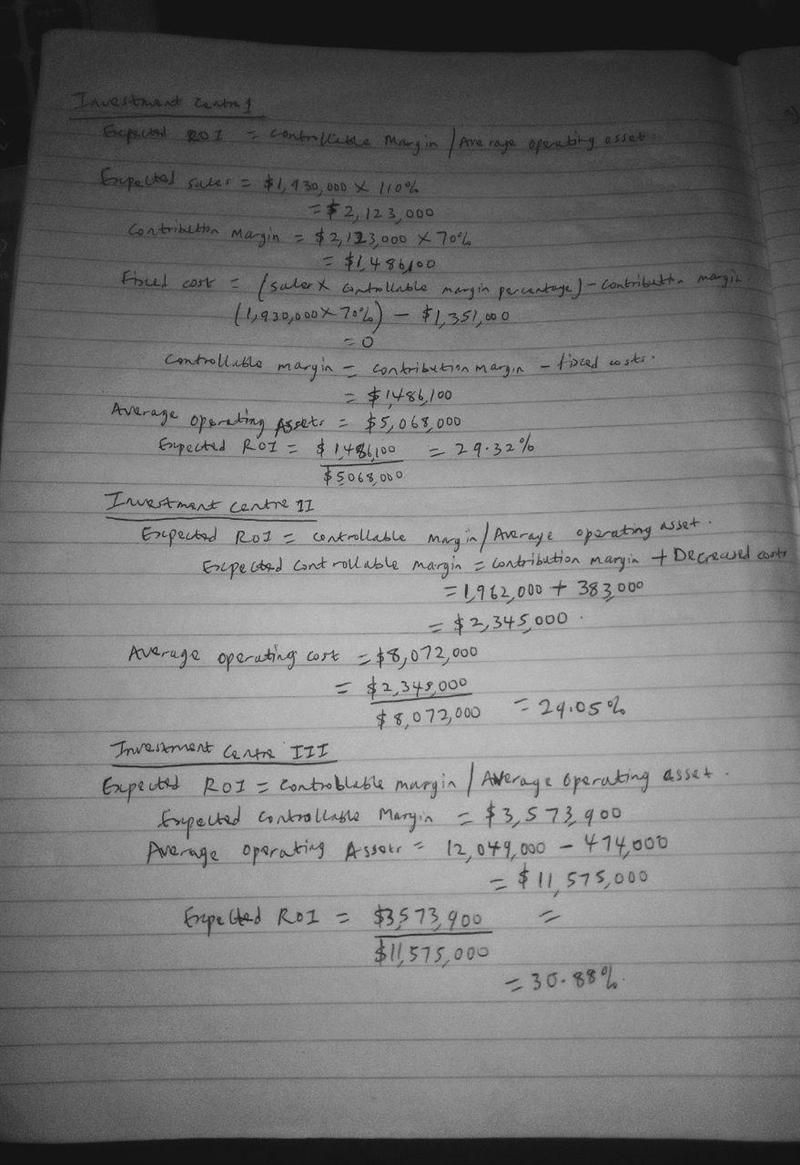 Investment Centre 1
Expected ROI = Controllable Margin / Average operating asset.
Expected sales = $1,930,000 X 110%
= $2,123,000
Contribution Margin = $2,123,000 X 70%
= $1,486,100
Fixed cost = (sales X controllable margin percentage) - contribution margin
(1,930,000 X 70%) - $1,351,000
= 0
Controllable margin = contribution margin - fixed costs.
= $1,486,100
Average operating Assets = $5,068,000
Expected ROI = $1,486,100 = 29.32%
$5068,000
Investment Centre II
Expected ROI = controllable margin / Average operating asset.
Expected controllable margin = contribution margin + Decreased costs
= 1,962,000 + 383,000
= $2,345,000.
Average operating cost = $8,072,000
= $2,345,000
$8,072,000 = 29.05%
Investment Centre III
Expected ROI = Controllable margin / Average operating asset.
Expected controllable Margin = $3,573,900
Average operating Assets = 12,049,000 - 474,000
= $11,575,000
Expected ROI = $3,573,900 =
$11,575,000
= 30.88%.